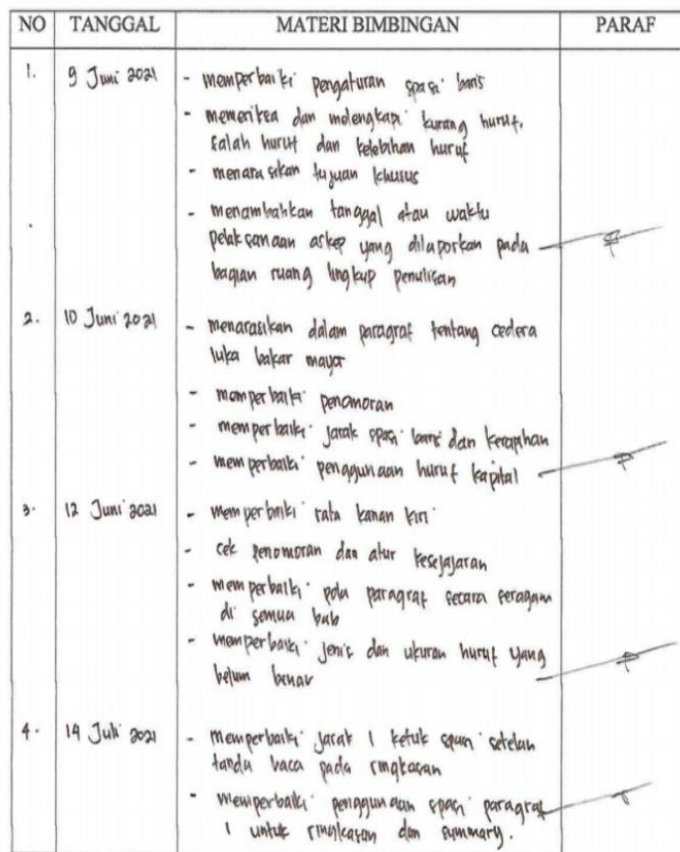 NO TANGGAL MATERI BIMBINGAN PARAF
1. 9 Juni 2021 - memperbaiki pengaturan spasi baris
- memeriksa dan melengkapi kurang huruf,
salah huruf dan kelebihan huruf
- menarasikan tujuan khusus
- menambahkan tanggal atau waktu
pelaksanaan askep yang dilaporkan pada
bagian ruang lingkup penulisan
2. 10 Juni 2021 - menarasikan dalam paragraf tentang cedera
luka bakar mayor
- memperbaiki penomoran
- memperbaiki jarak spasi baris dan kerapihan
- memperbaiki penggunaan huruf kapital
3. 12 Juni 2021 - memperbaiki rata kanan kiri
- cek penomoran dan atur kesejajaran
- memperbaiki pola paragraf secara seragam
di semua bab
- memperbaiki jenis dan ukuran huruf yang
belum benar
4. 14 Juli 2021 - memperbaiki jarak 1 ketuk spasi setelah
tanda baca pada ringkasan
- memperbaiki penggunaan spasi paragraf
1 untuk ringkasan dan summary.